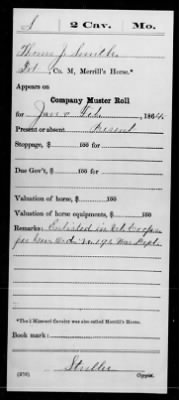 S | 2 Cav. | Mo.
Thomas J. Smith
Pvt., Co. M, Merrill's Horse.*
Appears on
Company Muster Roll
for Jan & Feb, 1864.
Present or absent Present
Stoppage, $ 100 for
Due Gov't, $ 100 for
Valuation of horse, $ 100
Valuation of horse equipments, $ 100
Remarks: Enlisted in Vet Corps
per Genl Ords No 191 War Dept
*The 2 Missouri Cavalry was also called Merrill's Horse.
Book mark:
(358)
Copyist.